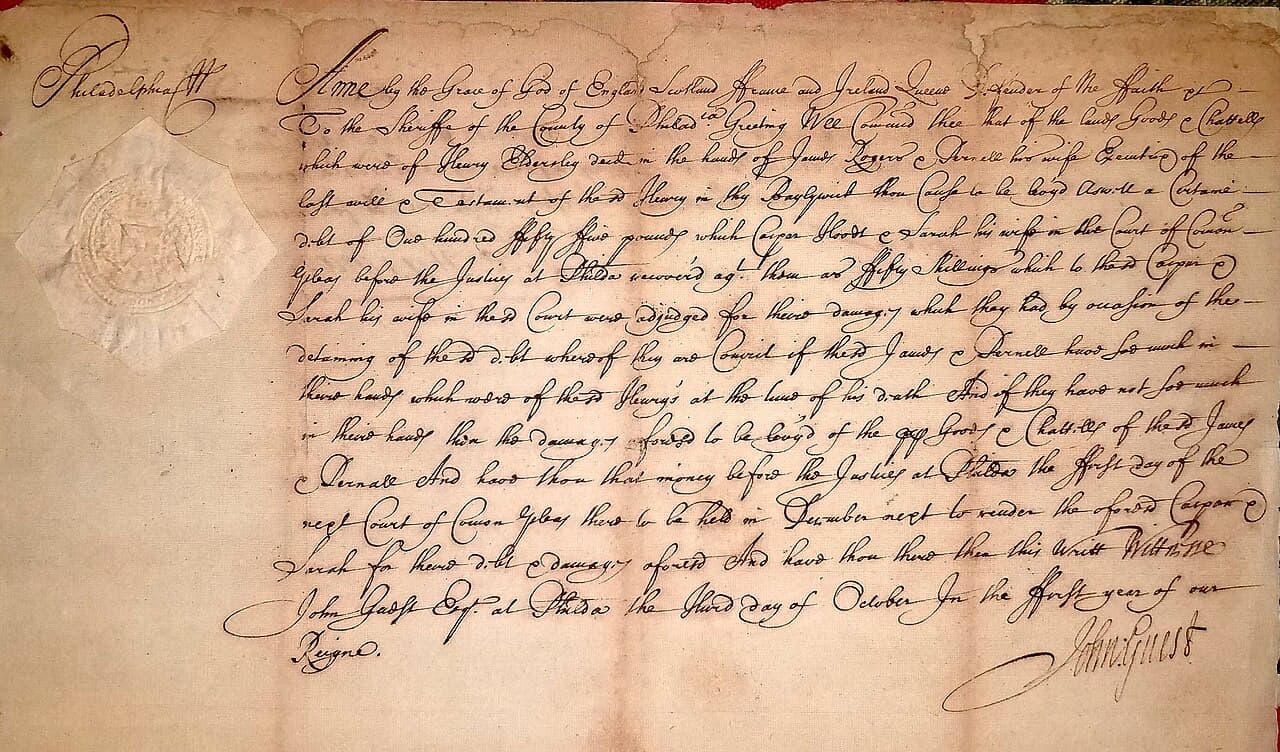 Philadelphia ss
Anne by the Grace of God of England Scotland ffrance and Ireland Queene Defender of the ffaith &ct
To the Sheriffe of the County of Philad^ia Greeting Wee Comand thee that of the lands Goods & Chattells
which were of Henry Eldersley decd in the hands of James Rogers & Dernell his wife Executrix of the
last will & Testament of the sd Henry in thy Baylywick thou Cause to be levyd Aswell a Certaine
debt of One hundred ffifty ffive pounds which Caspar Hoodt & Sarah his wife in the Court of Comon
pleas before the Justices at Philda recover'd agt. them as ffifty Shillings which to the sd Caspar &
Sarah his wife in the sd Court were adjudged for theire damages which they had by occasion of the
detaining of the sd debt whereof they are Convict if the sd James & Dernell have soe much in
theire hands which were of the sd Henry's at the time of his death And if they have not soe much
in theire hands then the damages aforesd to be levy'd of the pp Goods & Chattells of the sd James
& Dernall And have thou that money before the Justices at Philda the ffirst day of the
next Court of Comon pleas there to be held in December next to render the aforesd Caspar &
Sarah for theire debt & damages aforesd And have thou there then this Writt Wittnesse
John Guest Esqr. at Philda the Third day of October In the ffirst year of our
Reigne.
John: Guest